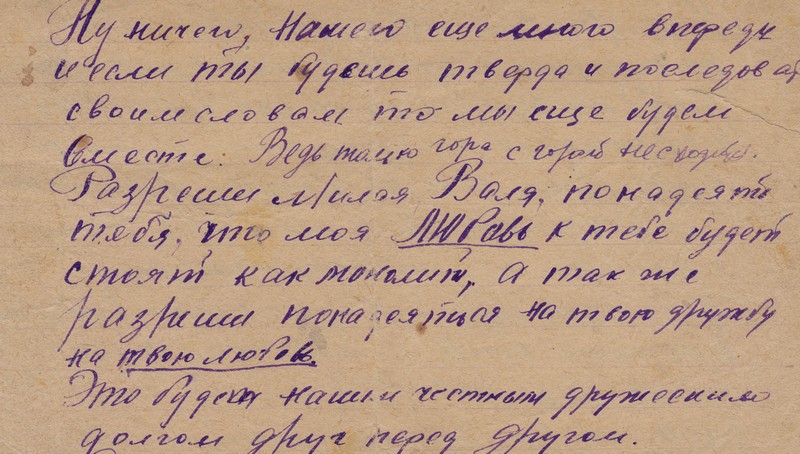 Ну ничего, нашего еще много впереди
и если ты будешь тверда и последоват
своим словам то мы еще будем
вместе. Ведь гора с горой несходится.
Разреши милая Валя, понадеять
тебя, что моя любовь к тебе будет
стоять как монолит, а так же
разреши понадеяться на твою дружбу
на твою любовь.
Это будет нашим честным дружеским
долгом друг перед другом.